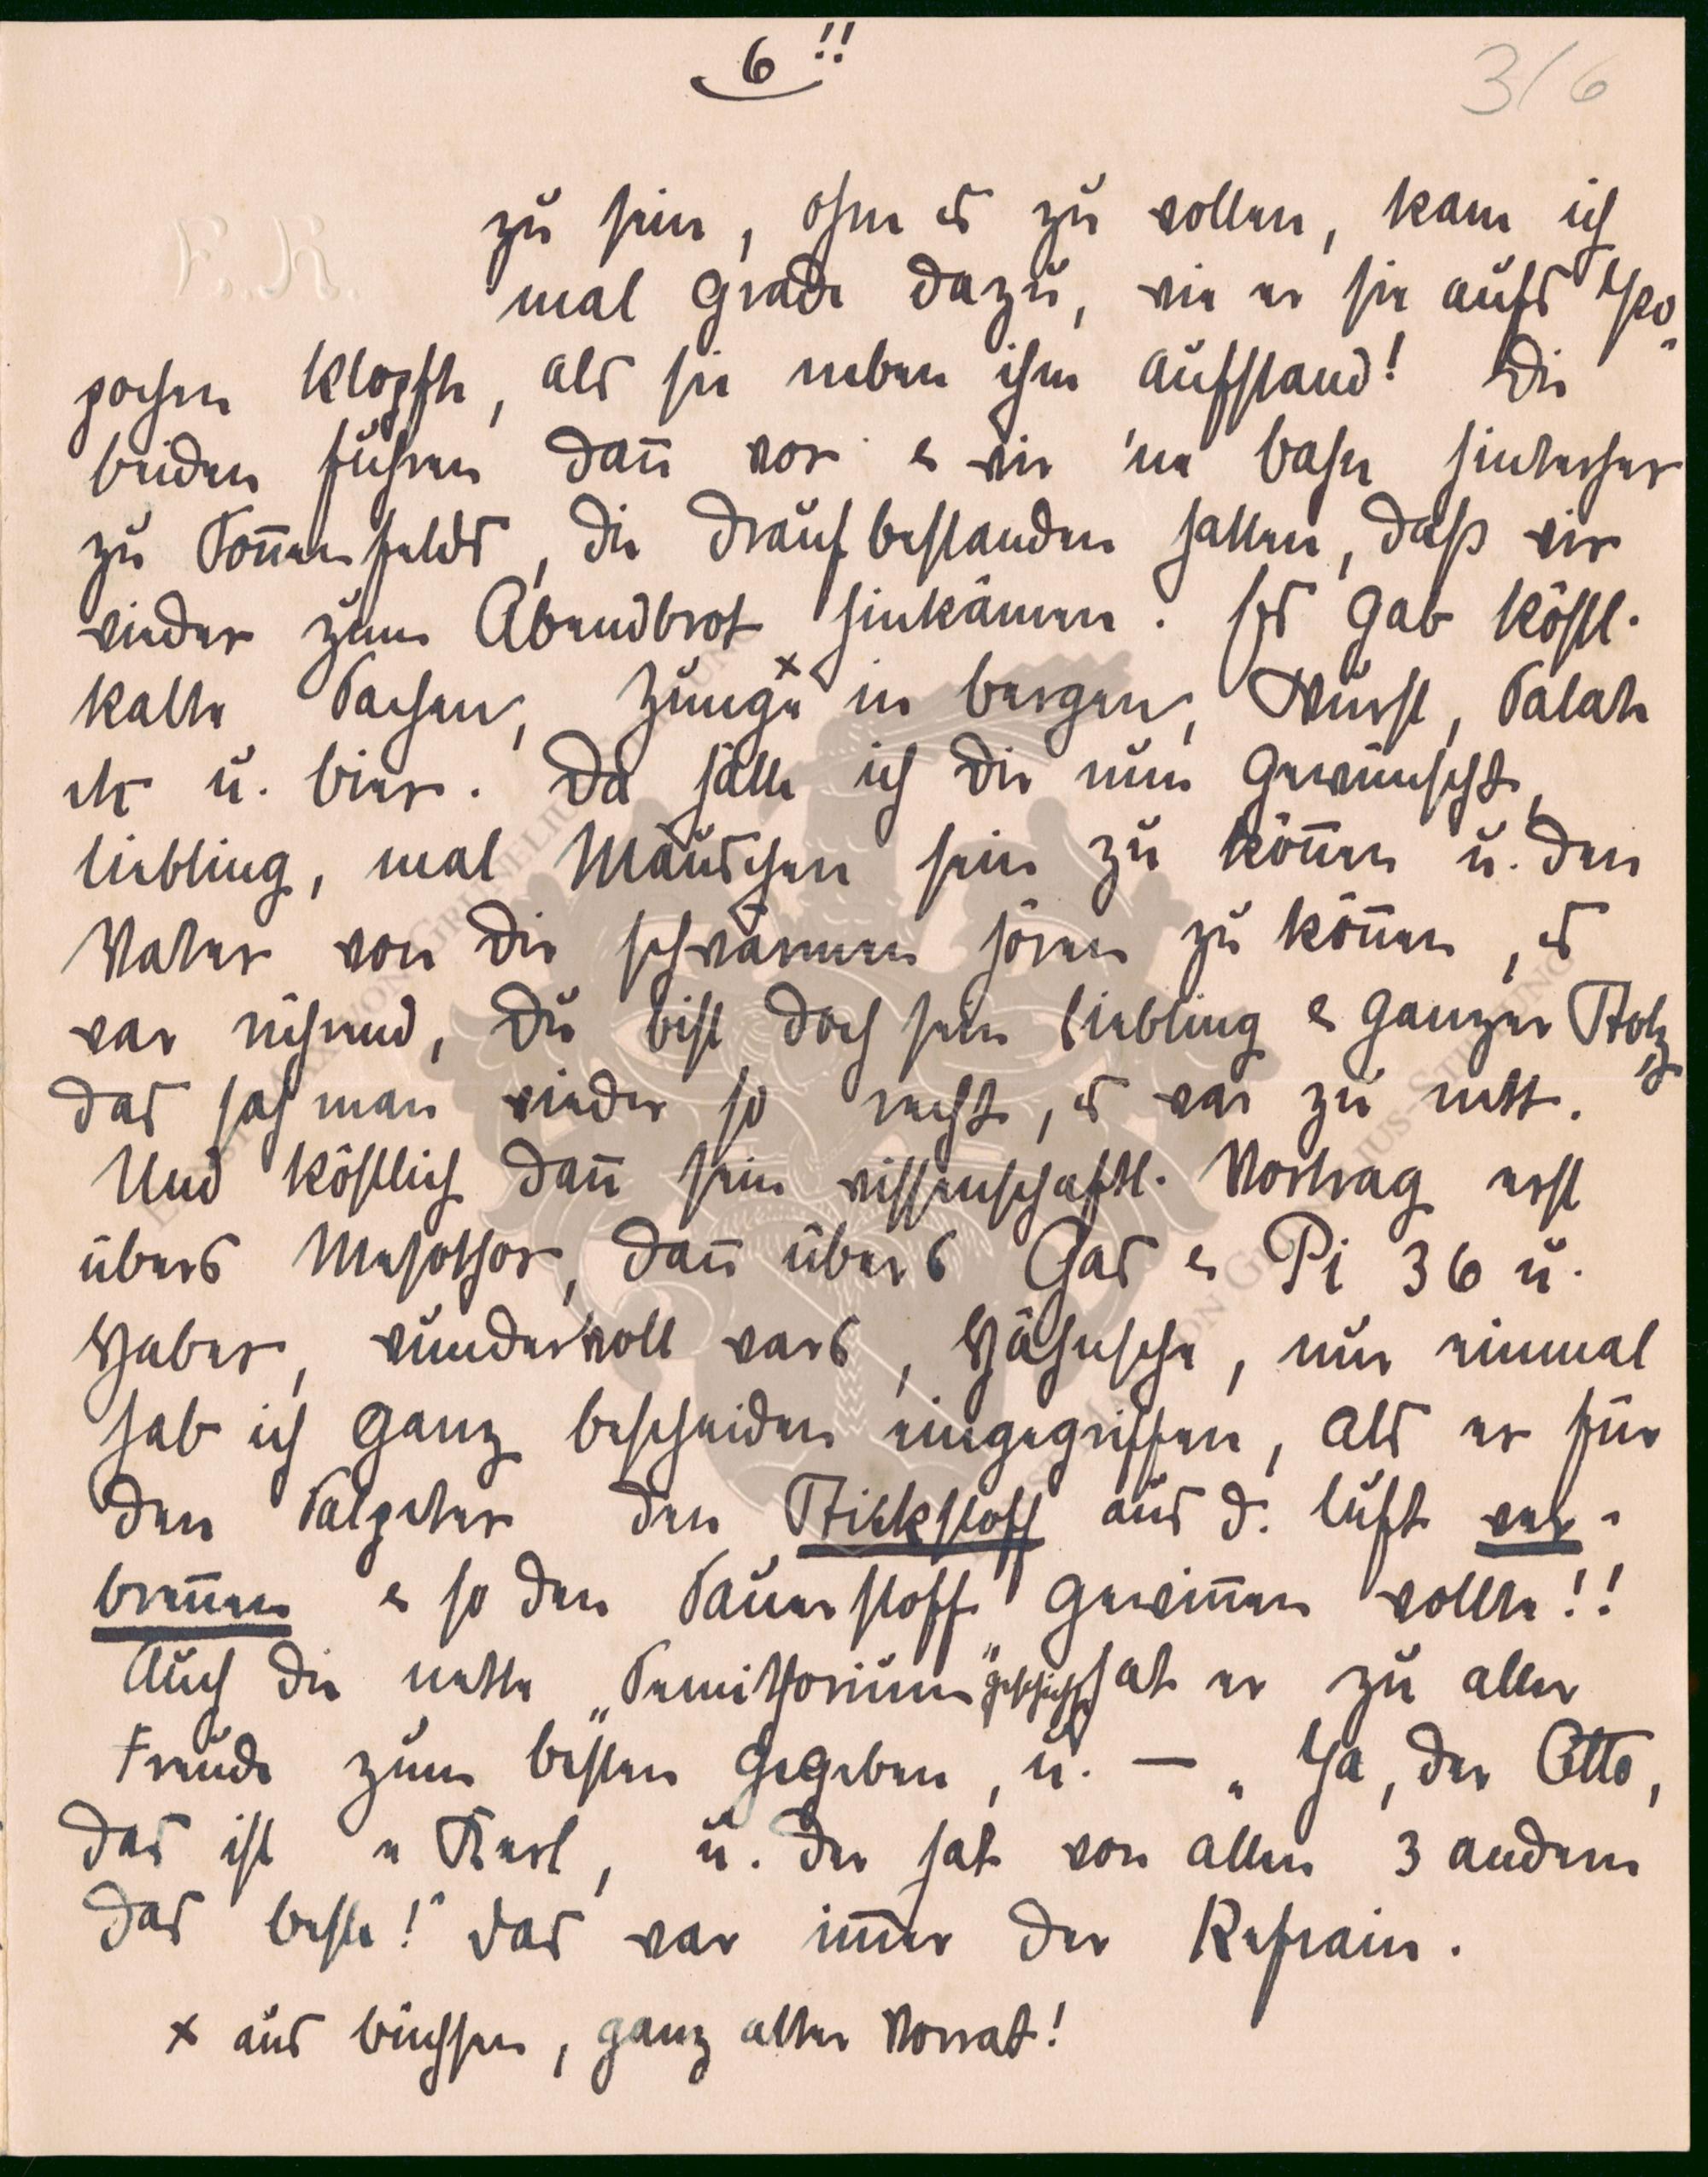 6!!
3/6
F. H.
zu sein, ohne es zu wollen, kam ich
mal grade dazu, wie er sie aufs Po-
pochen klopfte, als sie neben ihm aufstand! Die
beiden fuhren dann vor & wir 'ne Bahn hinterher
zu Sonnenfelds, die drauf bestanden hatten, daß wir
wieder zum Abendbrot hinkämen. Es gab köstl.
kalte Sachen, Zunge x in Bergen, Wurst, Salate
etc u. Bier. Da hätte ich Dir nun gewünscht,
Liebling, mal Mäuschen sein zu können u. den
Vater von Dir schwärmen hören zu können, es
war rührend, Du bist doch sein Liebling & ganzer Stolz,
das sah man wieder so recht, es war zu nett.
Und köstlich dann sein wissenschaftl. Vortrag erst
übers Mesothor, dann übers Gas & Pi 36 u.
Haber, wundervoll wars, Hähnsche, nur einmal
hab ich ganz bescheiden eingegriffen, als er für
den Salpeter den Stickstoff aus d. Luft ver-
brennen & so den Sauerstoff gewinnen wollte!!
Auch die nette „Semithorium"geschichte hat er zu aller
Freude zum besten gegeben, u. — „Ja, der Otto,
das ist n Kerl, u. der hat von allen 3 andern
das beste!" Das war immer der Refrain.
x aus Büchsen, ganz alter Vorrat!
ERNST-MAXIMILIAN VON GRUNELIUS-STIFTUNG